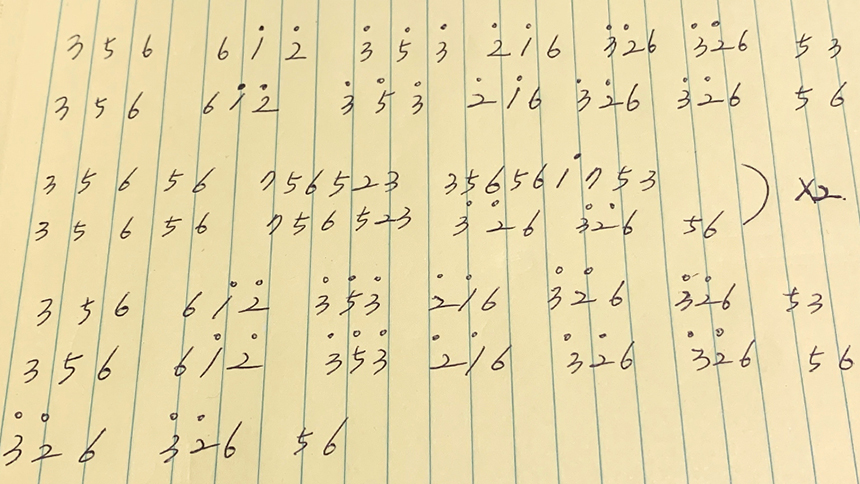 3 5 6 6 1̇ 2̇ 3̇ 5̇ 3̇ 2̇ 1̇ 6 3̇ 2̇ 6 3̇ 2̇ 6 5 3
3 5 6 6 1̇ 2̇ 3̇ 5̇ 3̇ 2̇ 1̇ 6 3̇ 2̇ 6 3̇ 2̇ 6 5 6
3 5 6 5 6 7 5 6 5 2 3 3 5 6 5 6 1̇ 7 5 3 ) X2.
3 5 6 5 6 7 5 6 5 2 3 3̇ 2̇ 6 3̇ 2̇ 6 5 6
3 5 6 6 1̇ 2̇ 3̇ 5̇ 3̇ 2̇ 1̇ 6 3̇ 2̇ 6 3̇ 2̇ 6 5 3
3 5 6 6 1̇ 2̇ 3̇ 5̇ 3̇ 2̇ 1̇ 6 3̇ 2̇ 6 3̇ 2̇ 6 5 6
3̇ 2̇ 6 3̇ 2̇ 6 5 6